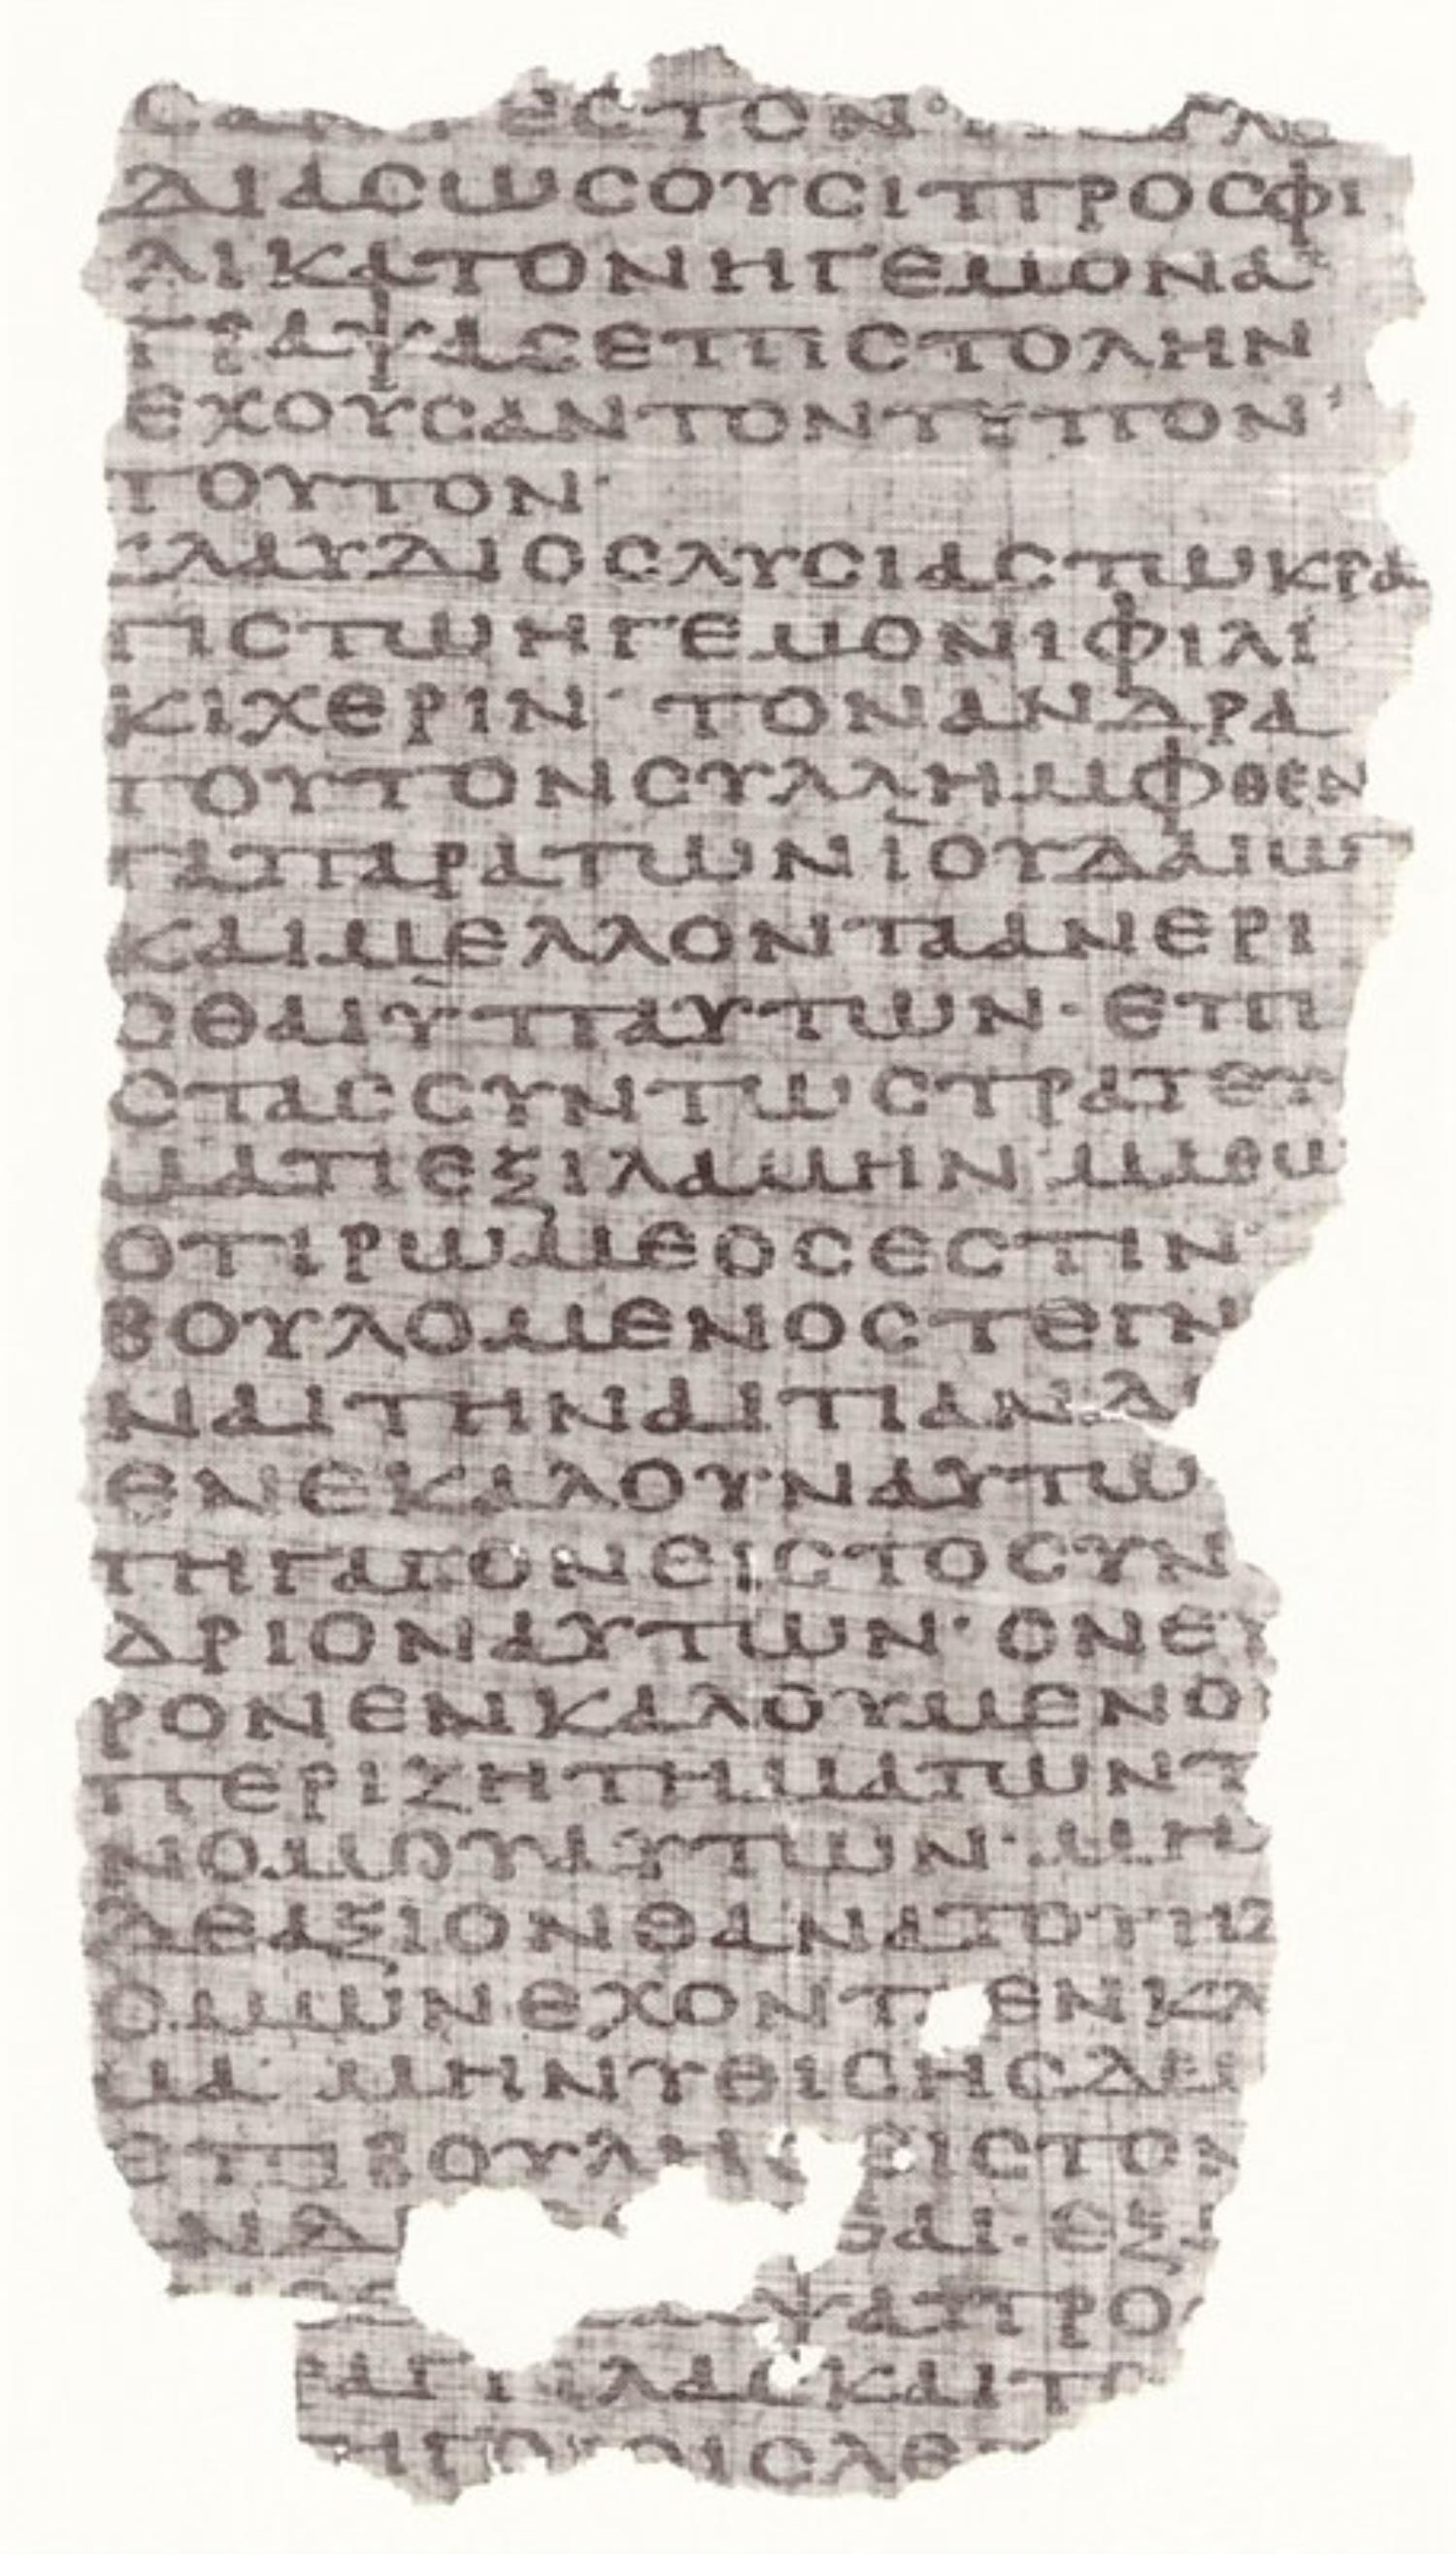 ΕϹΤΟΝ
ΔΙΑϹΩϹΟΥϹΙΠΡΟϹΦΙ
ΛΙΚΑΤΟΝΗΓΕΜΟΝΑ
ΓΡΑΨΑϹΕΠΙϹΤΟΛΗΝ
ΕΧΟΥϹΑΝΤΟΝΤΥΠΟΝ
ΤΟΥΤΟΝ·
ΚΛΑΥΔΙΟϹΛΥϹΙΑϹΤΩΚΡΑ
ΤΙϹΤΩΗΓΕΜΟΝΙΦΙΛΙ
ΚΙΧΕΡΙΝ· ΤΟΝΑΝΔΡΑ
ΤΟΥΤΟΝϹΥΛΛΗΜΦΘΕΝ
ΤΑΠΑΡΑΤΩΝΪΟΥΔΑΙΩ
ΚΑΙΜΕΛΛΟΝΤΑΑΝΕΡΙ
ϹΘΑΙΫΠΑΥΤΩΝ·ΕΠΙ
ϹΤΑϹϹΥΝΤΩϹΤΡΑΤΕΥ
ΜΑΤΙΕΞΙΛΑΜΗΝ ΜΑΘΩ
ΟΤΙΡΩΜΕΟϹΕϹΤΙΝ·
ΒΟΥΛΟΜΕΝΟϹΤΕΓΝ
ΝΑΙΤΗΝΑΙΤΙΑΝΔ
ΕΝΕΚΑΛΟΥΝΑΥΤΩ
ΤΗΓΑΓΟΝΕΙϹΤΟϹΥΝ
ΔΡΙΟΝΑΥΤΩΝ·ΟΝΕΥ
ΡΟΝΕΝΚΑΛΟΥΜΕΝΟ
ΠΕΡΙΖΗΤΗΜΑΤΩΝΤ
ΝΟΜΟΥΑΥΤΩΝ·ΜΗ
ΔΕΑΞΙΟΝΘΑΝΑΤΟΥΗΔ
ϹΜΩΝΕΧΟΝΤ ΕΝΚΛ
ΜΑ ΜΗΝΥΘΙϹΗϹΔΕ
ΕΠΙΒΟΥΛΗϹ ΕΙϹΤΟΝ
ΑΝΔ ϹΑΙ·ΕΞ
ΨΑΠΡΟ
ΠΑΡΑΓΓΙΛΑϹΚΑΙΤ
ΗΓΟΡΟΙϹΛΕ